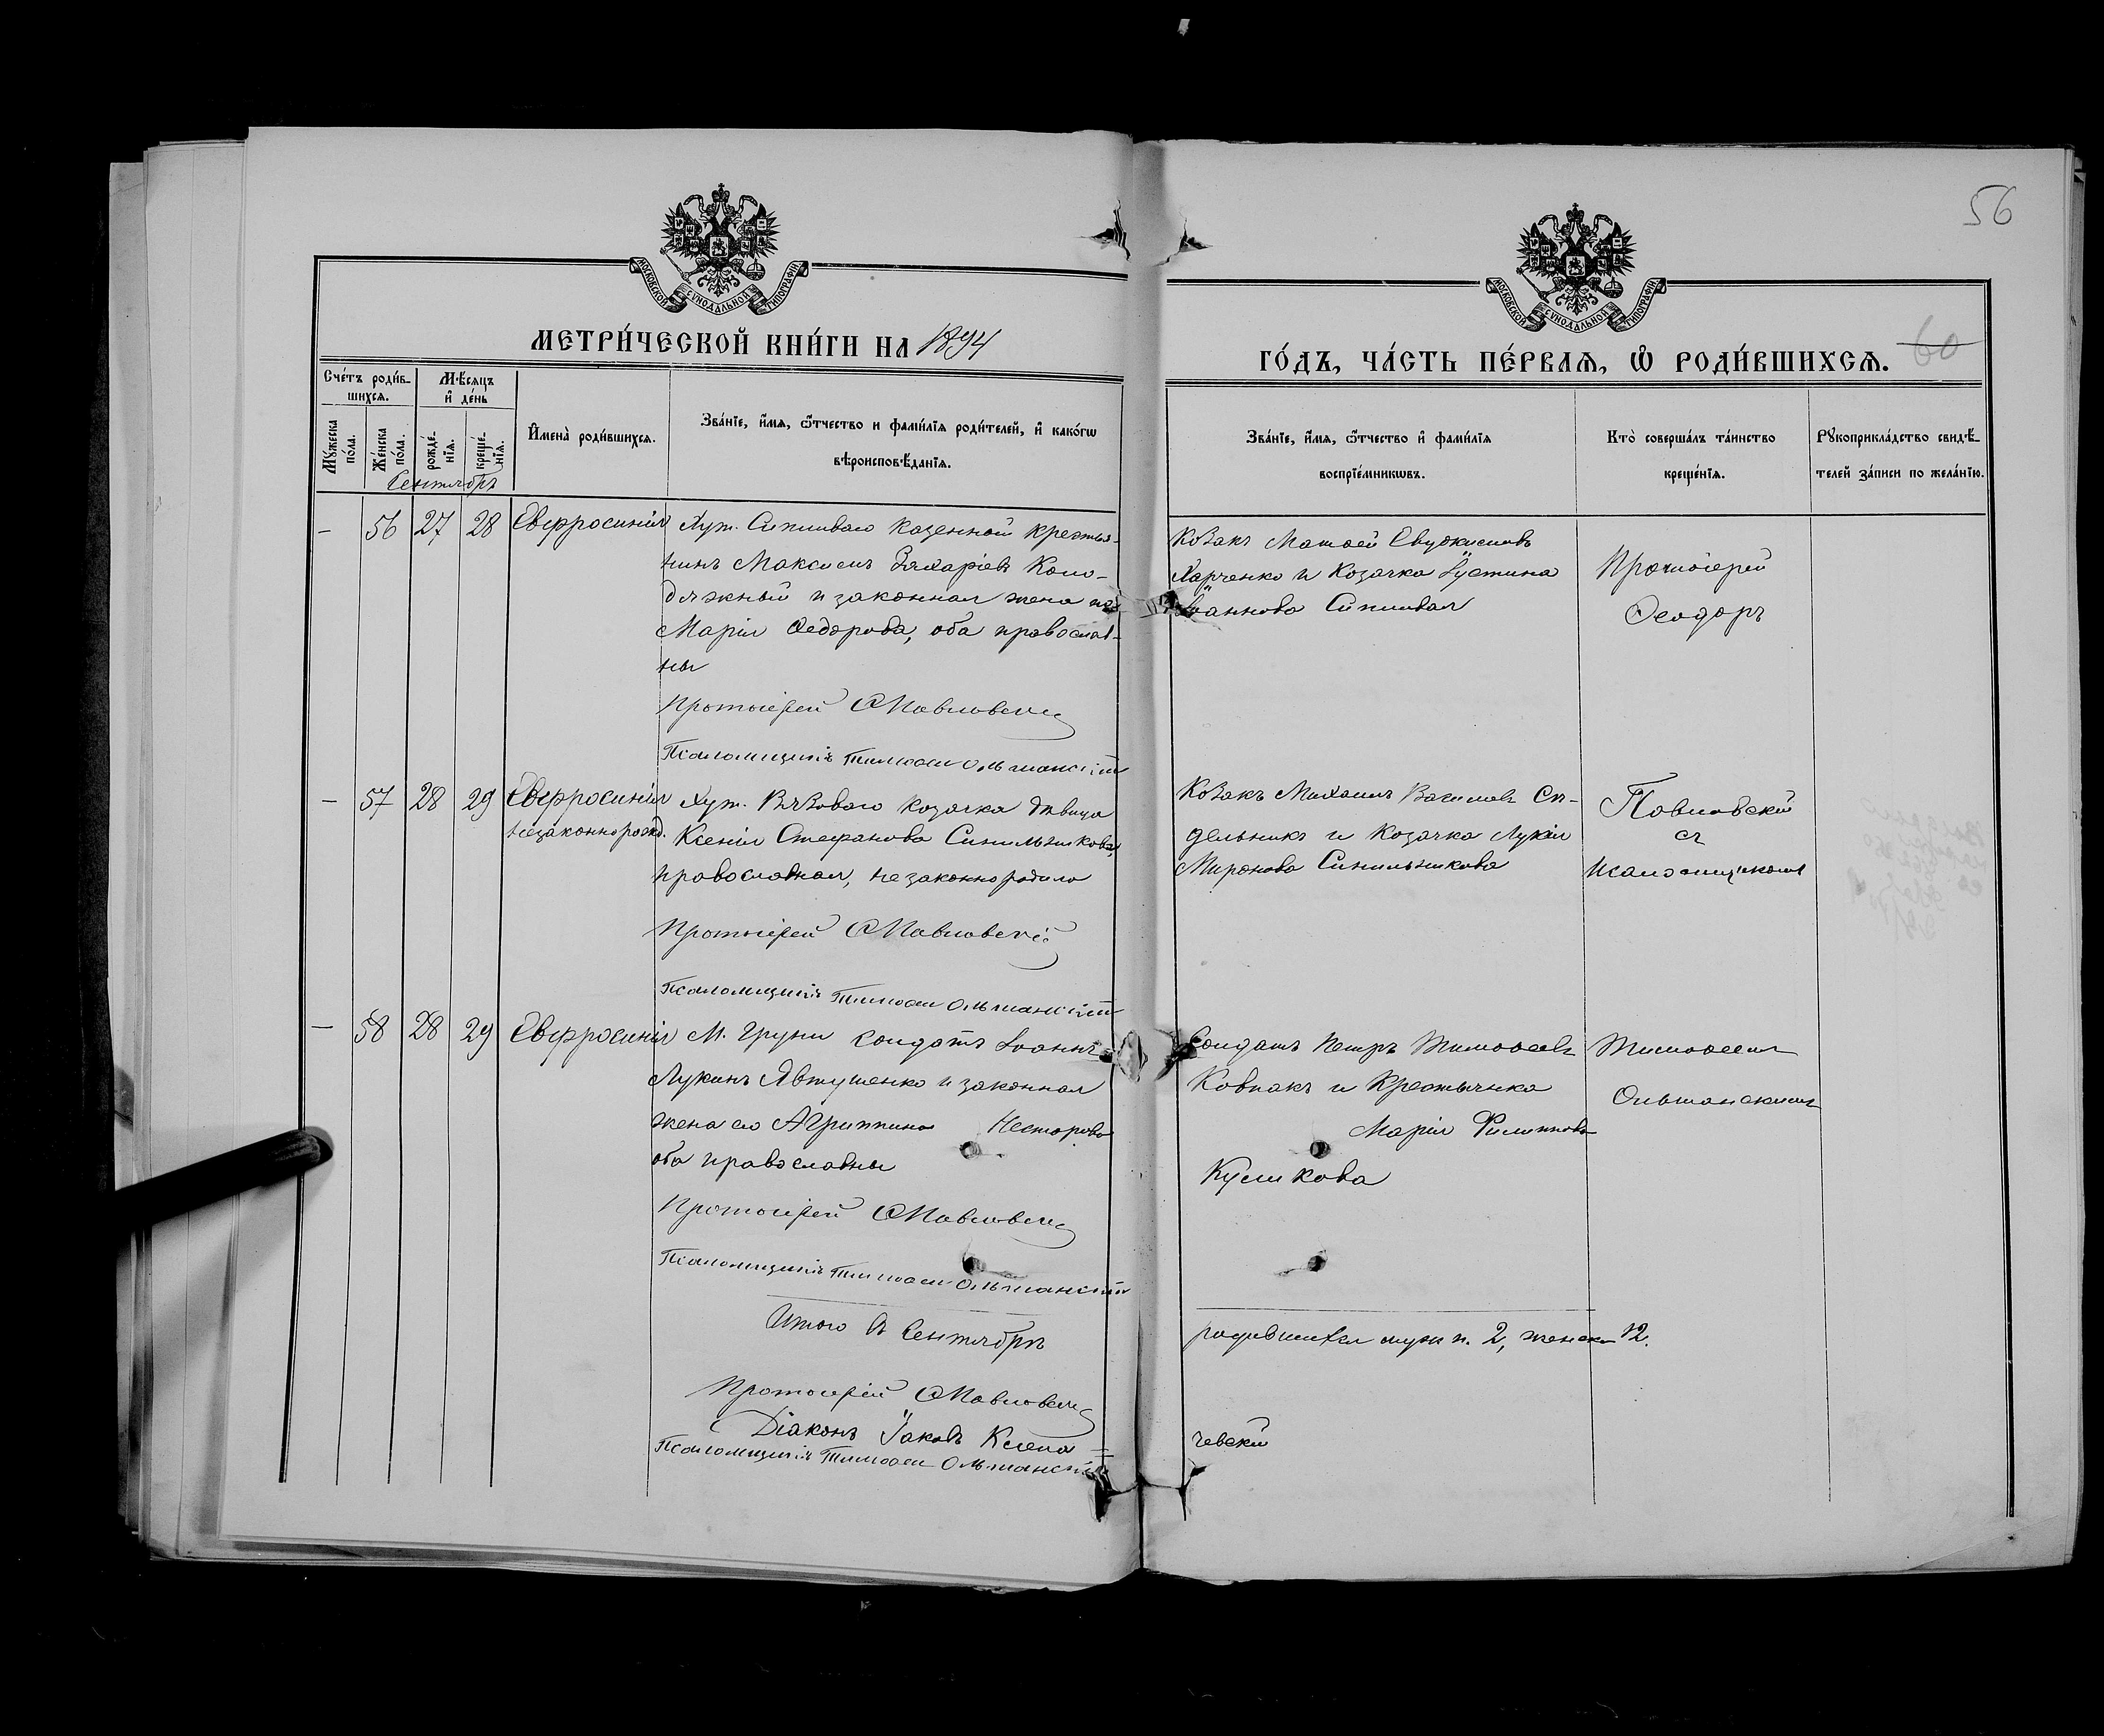 56
МОСКОВСКОЙ СѴНОДАЛЬНОЙ ТИПОГРАФІИ
МОСКОВСКОЙ СѴНОДАЛЬНОЙ ТИПОГРАФІИ
МЕТРИ́ЧЕСКОЙ КНИ́ГИ НА 1894
ГО́ДЪ, ЧА́СТЬ ПЕ́РВАЯ, Ѡ҆ РОДИ́ВШИХСЯ. 60
Сче́тъ роди́в-
шихся.
Мѣ́сяцъ
и҆ де́нь
Мꙋ́жеска
по́ла.
Же́нска
по́ла.
рожде́-
нїя.
креще́-
нїя.
И҆мена̀ роди́вшихся.
Зва́нїе, и҆́мя, ѻ҆́тчество и фами́лїя роди́телей, и҆ како́гѡ
вѣроисповѣ́данїя.
Зва́нїе, и҆́мя, ѻ҆́тчество и҆ фами́лїя
воспрїе́мникѡвъ.
Кто̀ соверша́лъ та́инство
креще́нїя.
Рꙋкоприкла́дство свидѣ́-
телей за́писи по жела́нїю.
Сентябрь
— 56 27 28 Евфросинія
Хут. казенной крестья-
нинъ Максимъ Захаріевъ Коло-
дяжный и законная жена его
Марія Ѳедорова, оба православ-
ны
Протоіерей Ѳ Павловскій
Псаломщикъ Тимоѳей Ольшанскій
Козакъ Матѳей
Харченко и Козачка Іустина
Іоаннова
Протоіерей
Ѳеодоръ
— 57 28 29 Евфросинія
незаконнорожд.
Хут. Вязоваго козачка дѣвица
Ксенія Стефанова Синильникова,
православная, незаконно родила
Протоіерей Ѳ Павловскій
Псаломщикъ Тимоѳей Ольшанскій
Козакъ Михаилъ Васильевъ Си-
дельникъ и Козачка Лукія
Миронова Синильникова
Павловскій
съ
псаломщикомъ
— 58 28 29 Евфросинія
М. Груни солдатъ Іоаннъ
Лукинъ Явтушенко и законная
жена его Агриппина Несторова
оба православны
Протоіерей Ѳ Павловскій
Псаломщикъ Тимоѳей Ольшанскій
Солдатъ Петръ Тимоѳеевъ
Ковпакъ и Крестьянка
Марія Филиппова
Куликова
Тимоѳеемъ
Ольшанскимъ
Итого въ Сентябрѣ
родившихся муж п. 2, женск 12.
Протоіерей Ѳ Павловскій
Діаконъ Іаковъ Ксена-
чевскій
Псаломщикъ Тимоѳей Ольшанскій